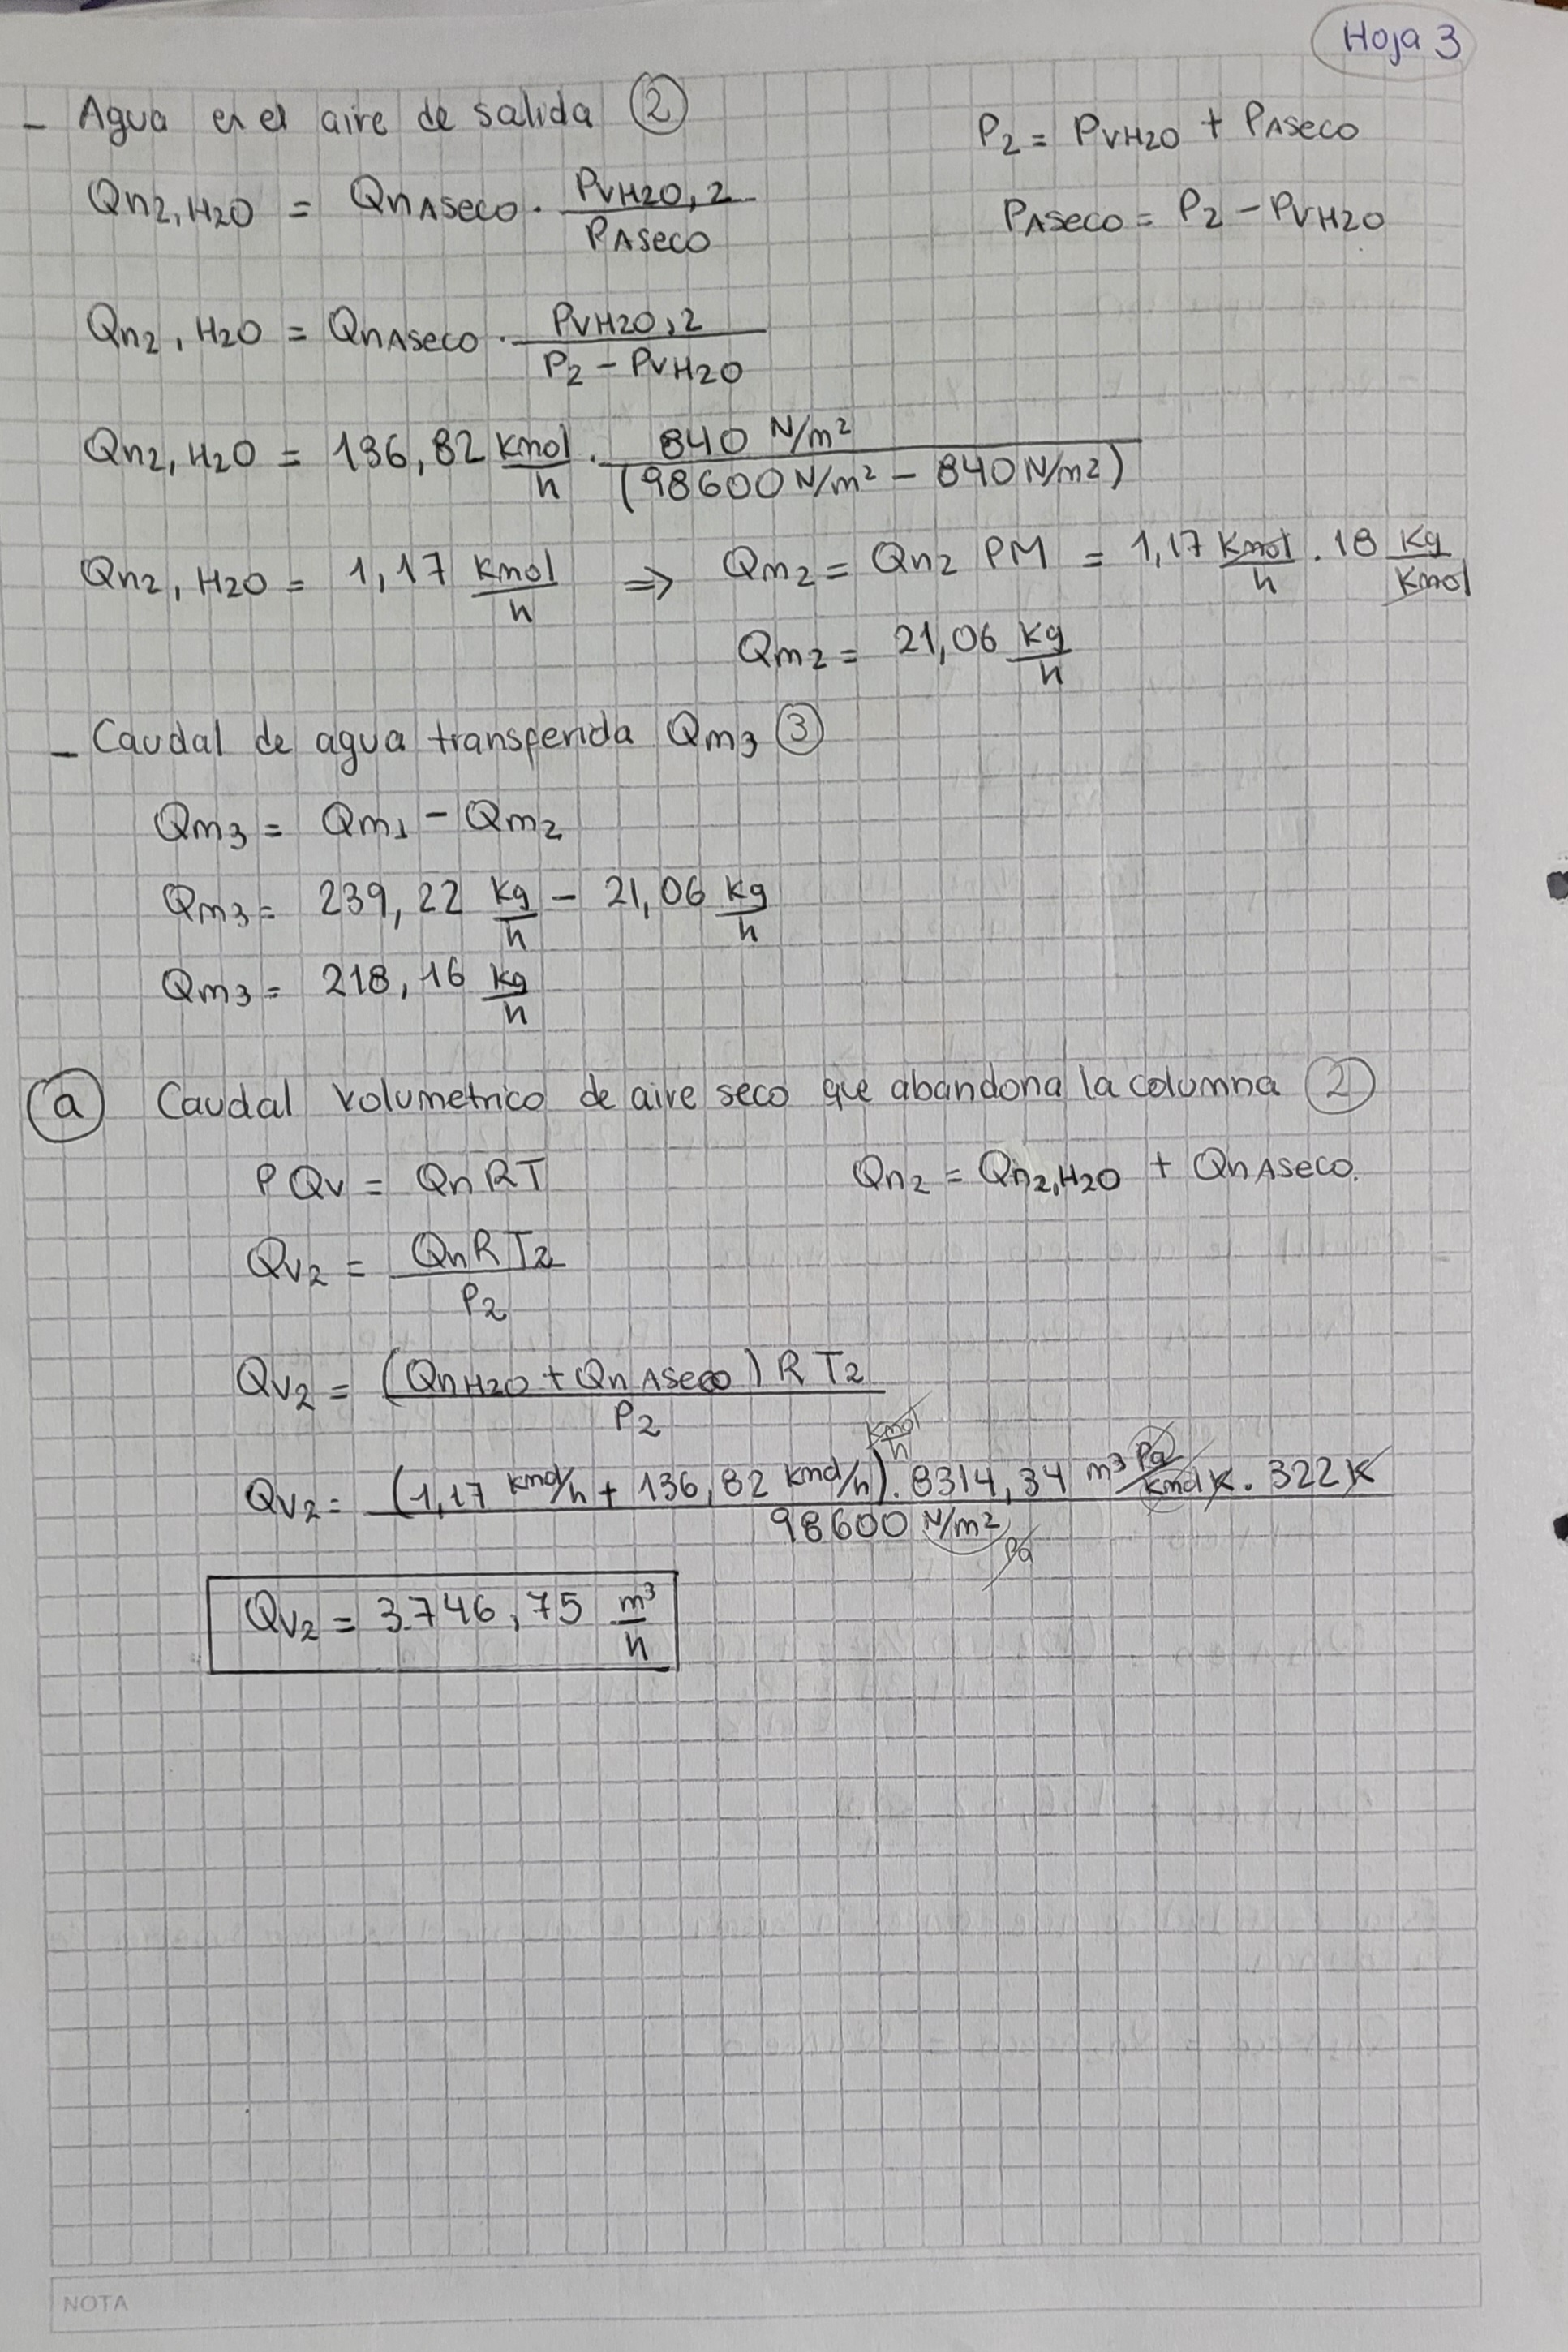 Hoja 3
- Agua en el aire de salida ②
P2 = PVH2O + PASeco
Qn2,H2O = QnASeco · PVH2O,2 / PASeco
PASeco = P2 - PVH2O
Qn2,H2O = QnASeco · PVH2O,2 / P2 - PVH2O
Qn2,H2O = 136,82 Kmol/h · 840 N/m² / (98600 N/m² - 840 N/m²)
Qn2,H2O = 1,17 Kmol/h ⇒ Qm2 = Qn2 PM = 1,17 Kmol/h · 18 Kg/Kmol
Qm2 = 21,06 Kg/h
- Caudal de agua transferida Qm3 ③
Qm3 = Qm1 - Qm2
Qm3 = 239,22 Kg/h - 21,06 Kg/h
Qm3 = 218,16 Kg/h
ⓐ Caudal volumetrico de aire seco que abandona la columna ②
PQv = QnRT
Qn2 = Qn2,H2O + QnASeco.
Qv2 = QnRT2 / P2
Qv2 = (QnH2O + QnASeco) R T2 / P2
Qv2 = (1,17 Kmol/h + 136,82 Kmol/h) Kmol/h · 8314,34 m³ Pa/Kmol K · 322 K / 98600 N/m² Pa
Qv2 = 3.746,75 m³/h
NOTA